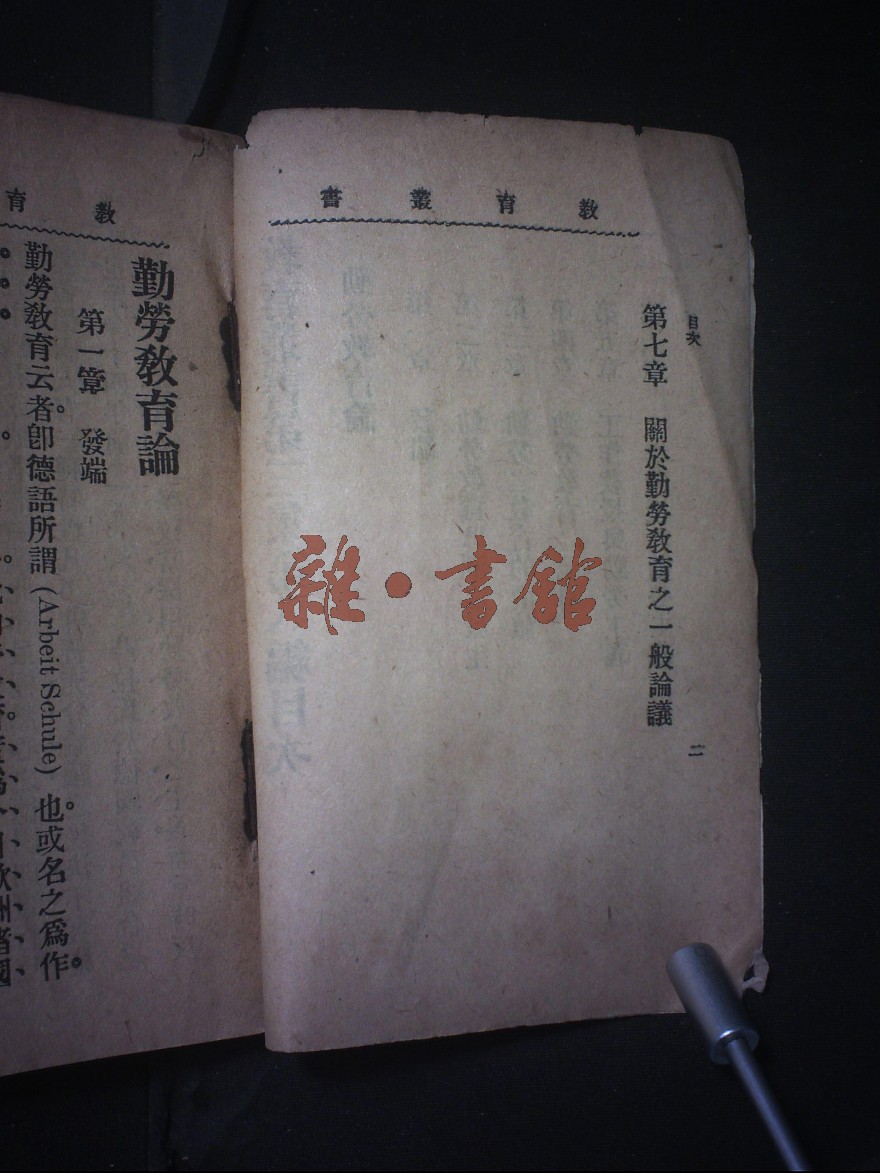 教育叢書
目次
第七章 關於勤勞教育之一般論議
二
雜·書館
教育
勤勞教育論
第一章 發端
勤勞教育云者。卽德語所謂(Arbeit Schule)也。或名之爲作。
歐洲諸國